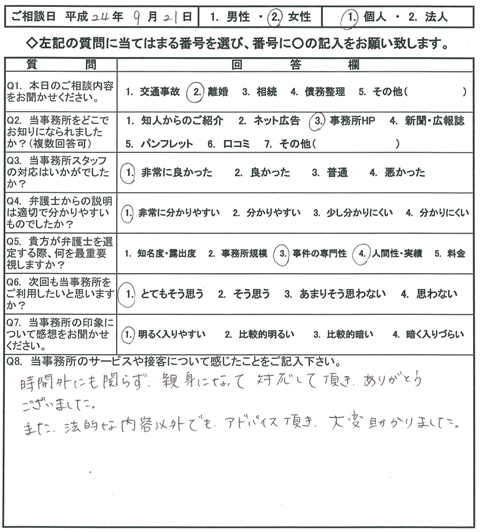 ご相談日 平成 24年 9月 21日 1. 男性 ・ 2. 女性 1. 個人 ・ 2. 法人
◇左記の質問に当てはまる番号を選び、番号に○の記入をお願い致します。
質 問 回 答 欄
Q1. 本日のご相談内容をお聞かせください。 1. 交通事故 2. 離婚 3. 相続 4. 債務整理 5. その他( )
Q2. 当事務所をどこでお知りになられましたか?(複数回答可) 1. 知人からのご紹介 2. ネット広告 3. 事務所HP 4. 新聞・広報誌
5. パンフレット 6. 口コミ 7. その他( )
Q3. 当事務所スタッフの対応はいかがでしたか? 1. 非常に良かった 2. 良かった 3. 普通 4. 悪かった
Q4. 弁護士からの説明は適切で分かりやすいものでしたか? 1. 非常に分かりやすい 2. 分かりやすい 3. 少し分かりにくい 4. 分かりにくい
Q5. 貴方が弁護士を選定する際、何を最重要視しますか? 1. 知名度・露出度 2. 事務所規模 3. 事件の専門性 4. 人間性・実績 5. 料金
Q6. 次回も当事務所をご利用したいと思いますか? 1. とてもそう思う 2. そう思う 3. あまりそう思わない 4. 思わない
Q7. 当事務所の印象について感想をお聞かせください。 1. 明るく入りやすい 2. 比較的明るい 3. 比較的暗い 4. 暗く入りづらい
Q8. 当事務所のサービスや接客について感じたことをご記入下さい。
時間外にも関らず、親身になって 対応して頂き、ありがとう
ございました。
また、法的な内容以外でも、アドバイス頂き、大変助かりました。